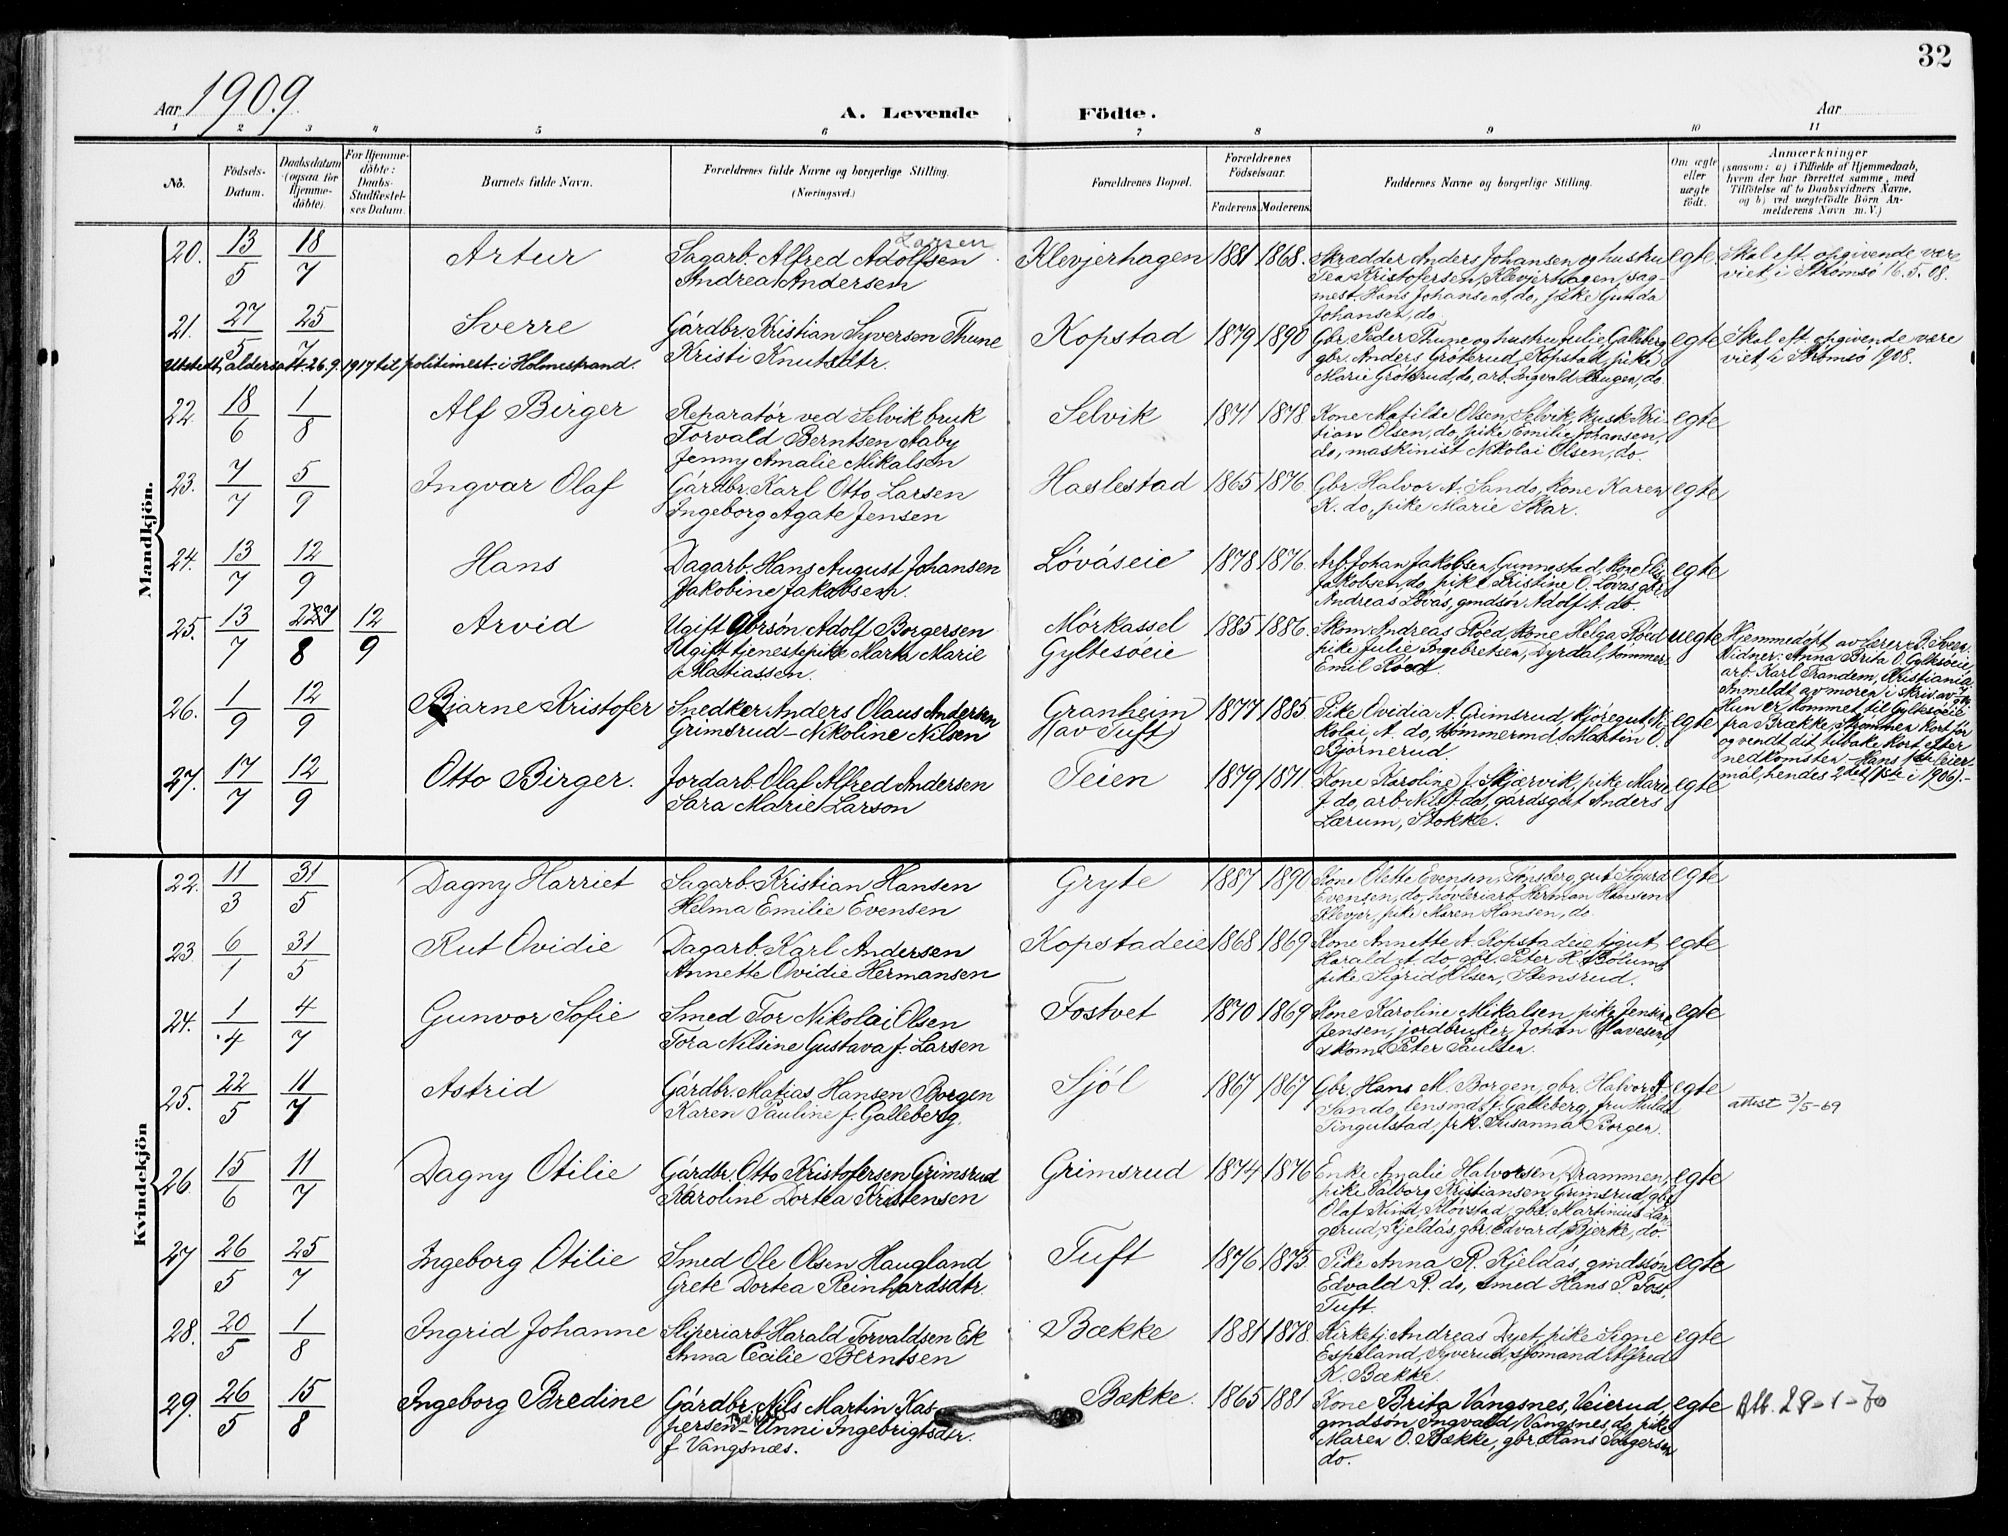 32
Aar 1909.
A. Levende Födte.
Aar
1 2 3 4 5 6 7 8 9 10 11
No.
Födsels-Datum.
Daabsdatum (ogsaa for Hjemmedöbte).
For Hjemmedöbte: Daabs-Stadfæstelses Datum.
Barnets fulde Navn.
Forældrenes fulde Navne og borgerlige Stilling.
(Næringsvei.)
Forældrenes Bopæl.
Forældrenes Födselsaar.
Faderens. Moderens.
Faddernes Navne og borgerlige Stilling.
Om ægte eller uægte födt.
Anmærkninger
(saasom: a) i Tilfælde af Hjemmedaab, hvem der har forrettet samme, med Tilföielse af to Daabsvidners Navne. og b) ved uægtefödte Börn Anmelderens Navn m. V.)
Mandkjön.
20. 13/5 18/7 Artur
Sagarb. Alfred Adolfsen Larsen
Andrea Andersen
Klevjerhagen 1881 1868.
Skrædder Anders Johansen og hustru
Tea Kristofersen, Klevjerhagen, sag-
mest. Hans Johansen, do, pike Gunda
Johansen, do.
egte.
Skal eft. opgivende være
viet i Strømsø 16.5.08.
21. 27/5 25/7 Sverre
Gárdbr. Kristian Syversen Thune
Kristi Knutsdtr.
Kopstad 1879 1890
Gbr. Peder Thune og hustru Julie Galleberg
gbr. Anders Grøterud, Kopstad, pike
Marie Grøterud, do, arb. Ingvald Haugen, do.
egte
Skal eft. opgivende være
viet i Strømsø 1908.
Utstedt aldersatt. 26.9.1917 til politimest. i Holmestrand.
22. 18/6 1/8 Alf Birger
Reparatør ved Selvik bruk
Torvald Berntsen Aaby
Jenny Amalie Mikalsen
Selvik 1871 1878
Kone Matilde Olsen, Selvik, kusk Kri-
tian Olsen, do, pike Emilie Johansen,
do, maskinist Nikolai Olsen, do.
egte
23. 7/7 5/9 Ingvar Olaf
Gárdbr. Karl Otto Larsen
Ingeborg Agate Jensen
Haslestad 1865 1876
Gbr. Halvor A. Sando, kone Karen
K. do, pike Marie Skar.
egte
24. 13/7 12/9 Hans
Dagarb. Hans August Johansen
Jakobine Jakobsen.
Løváseie 1878 1876.
Arb. Johan Jakobsen, Gunnestad, kone
Jakobsen, do, pike Kristine O. Løvás, gbr
Andreas Løvás, gmdsøn Adolf A. do.
egte
25. 13/7 /8 12/9 Arvid
Ugift gbrsøn Adolf Borgersen
Ugift tjenestepike Marta Marie
Matiassen.
Mørkassel
Gyltesøeie
1885 1886.
Skom. Andreas Røed, kone Helga Røed
pike Julie Ingebretsen, Dyrdal, tømmer
Emil Røed.
uegte
Hjemmedøpt av lærer R. Sveen.
Vidner: Anna Brita O. Gyltesøeie
arb. Karl Trandem, Kristiania
Anmeldt av moren i skriv. av
Hun er kommet til Gyltesøeie
fra Brække, Strømmen kort før
og vendt dit tilbake kort efter
nedkomsten. – Hans 1ste leier-
mål, hendes 2det (1ste i 1906). –
26. 1/9 12/9 Bjarne Kristofer
Snedker Anders Olaus Andersen
Grimsrud – Nikoline Nilsen
Granheim
(av Tuft)
1877 1885
Pike Ovidia A. Grimsrud, kjøregut Ni-
kolai A. do, tømmermd. Martin O.
Bjørnerud.
egte
27. 17/7 12/9 Otto Birger.
Jordarb. Olaf Alfred Andersen
Sara Marie Larson
Teien 1879 1871.
Kone Karoline J. Skjærvik, pike Marie
J. do, arb. Nils J. do, gardsgut Anders
Lærum, Stokke.
egte
Kvindekjön
22. 11/3 31/5 Dagny Harriet
Sagarb. Kristian Hansen
Helma Emilie Evensen
Gryte 1887 1890
Kone Olette Evensen, Tønsberg, gut Sigurd
Evensen, do, høvleriarb. Herman Hansen
Klevjer, pike Maren Hansen, do.
egte
23. 6/1 31/5 Rut Ovidie
Dagarb. Karl Andersen
Annette Ovidie Hermansen
Kopstadeie 1868 1869
Kone Annette A. Kopstadeie, gut
Harald A. do, gbr. Peter H. Bølum,
pike Sigrid Olsen, Stensrud.
egte
24. 1/4 4/7 Gunvor Sofie
Smed Tor Nikolai Olsen
Tora Nilsine Gustava f. Larsen
Fostvet 1870 1869
Kone Karoline Mikalsen, pike Jensine
Jensen, jordbruker Johan Olavesen,
skom. Peter Paulsen.
egte
25. 22/5 11/7 Astrid
Gárdbr. Matias Hansen Borgen
Karen Pauline f. Galleberg.
Sjøl 1867 1867
Gbr. Hans M. Borgen, gbr. Halvor A.
Sando, lensmd. J. Galleberg, fru Hulda
Tingulstad, frk. Susanna Borgen.
egte
attest 3/5-69
26 15/6 11/7 Dagny Otilie
Gárdbr. Otto Kristofersen Grimsrud
Karoline Dortea Kristensen
Grimsrud 1874 1876
Enke Amalie Halvorsen, Drammen,
pike Valborg Kristiansen Grimsrud, gbr
Olaf Kind, Kløvstad, gbr. Martinius Lan-
gerud, Kjeldás, gbr. Edvard Bjerke, do.
egte
27 26/5 25/7 Ingeborg Otilie
Smed Ole Olsen Haugland
Grete Dortea Reinhardsdtr.
Tuft 1876 1875
Pike Anna R. Kjeldás, gmdsøn
Edvald R. do, smed Hans P. Foss,
Tuft.
egte
28. 20/5 1/8 Ingrid Johanne
Sliperiarb. Harald Torvaldsen Ek
Anna Cecilie Berntsen
Bække 1881 1878.
Kirketj. Andreas Dyet, pike Signe
Espeland, Syverud, sjømand Alfred
K. Bække.
egte
29. 26/5 15/8 Ingeborg Bredine
Gárdbr. Nils Martin Kas-
persen Bække – Unni Ingebrigtsdtr.
f. Vangsnæs.
Bække. 1865 1881
Kone Brita Vangsnes, Veierud,
gmdsøn Ingvald Vangsnes, do, pike
Maren O. Bække, gbr. Hans Borgersen
do.
egte
Att. 29-1-70